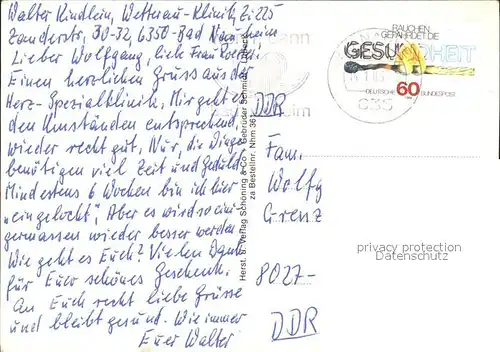 Walter Kindlein, Wetterau-Klinik, Zi 225
Zanderstr, 30-32, 6350-Bad Nauheim
Lieber Wolfgang, liebe Frau
Einen herzlichen Grüss aus der
Herz-Spezialklinik, Mir geht es
den Umständen entsprechend,
wieder recht gut, Nur, die Dinge
benötigen viel Zeit und Geduld.
Mindestens 6 Wochen bin ich hier
"eingelockt", Aber es wird so eini-
germassen wieder besser werden.
Wie geht es Euch? Vielen Dank
für Euer schönes Geschenk.
An Euch recht liebe Grüsse
und bleibt gesund. Wie immer
Euer Walter
Herst. u. Verlag Schöning & Co · Gebrüder Schmidt, Lübeck
za Bestellnr. Nhm 361
RAUCHEN
GEFÄHRDET DIE
GESUNDHEIT
DEUTSCHE 60 BUNDESPOST
635
DDR
Fam.
Wolfg
Grenz
8027-
DDR
privacy protection
Datenschutz